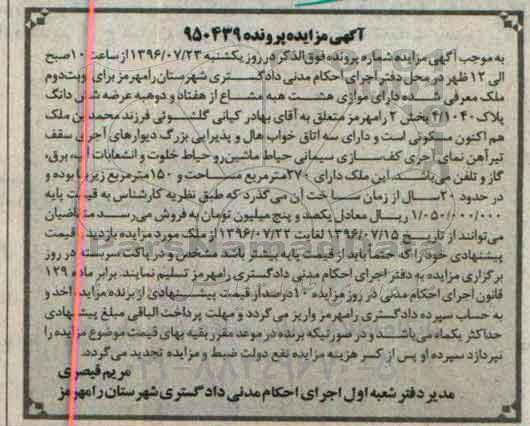 آگهی مزایده پرونده ۹۵۰۴۳۹
به موجب آگهی مزایده شماره پرونده فوق الذکر در روز یکشنبه ۱۳۹۶/۰۷/۲۳ از ساعت ۱۰ صبح
الی ۱۲ ظهر در محل دفتر اجرای احکام مدنی دادگستری شهرستان رامهرمز برای نوبت دوم
ملک معرفی شده دارای موازی هشت هبه مشاع از هفتاد و دو هبه عرضه شش دانگ
پلاک ۴/۱۰۴۰ بخش ۲ رامهرمز متعلق به آقای بهادر کیانی گلشوئی فرزند محمد بن ملک
هم اکنون مسکونی است و دارای سه اتاق خواب هال و پذیرایی بزرگ دیوارهای آجری سقف
تیرآهن نمای آجری کف سازی سیمانی حیاط ماشین رو حیاط خلوت و انشعابات آب، برق،
گاز و تلفن می باشد. این ملک دارای ۲۷۰ مترمربع مساحت و ۱۵۰ مترمربع زیربنا بوده و
در حدود ۲۰ سال از زمان ساخت آن می گذرد که طبق نظریه کارشناس به قیمت پایه
۱/۰۵۰/۰۰۰/۰۰۰ ریال معادل یکصد و پنج میلیون تومان به فروش می رسد متقاضیان
می توانند از تاریخ ۱۳۹۶/۰۷/۱۵ لغایت ۱۳۹۶/۰۷/۲۲ از ملک مورد مزایده بازدید و قیمت
پیشنهادی خود را که حتما باید از قیمت پایه بیشتر باشد مشخص و در پاکت سربسته در روز
برگزاری مزایده به دفتر اجرای احکام مدنی دادگستری رامهرمز تسلیم نمایند. برابر ماده ۱۲۹
قانون اجرای احکام مدنی در روز مزایده ۱۰ درصد از قیمت پیشنهادی از برنده مزایده اخذ و
به حساب سپرده دادگستری رامهرمز واریز می گردد و مهلت پرداخت الباقی مبلغ پیشنهادی
حداکثر یکماه می باشد و در صورتیکه برنده در موعد مقرر بقیه بهای قیمت موضوع مزایده را
نپردازد سپرده او پس از کسر هزینه مزایده نفع دولت ضبط و مزایده تجدید می گردد.
مریم قیصری
مدیر دفتر شعبه اول اجرای احکام مدنی دادگستری شهرستان رامهرمز